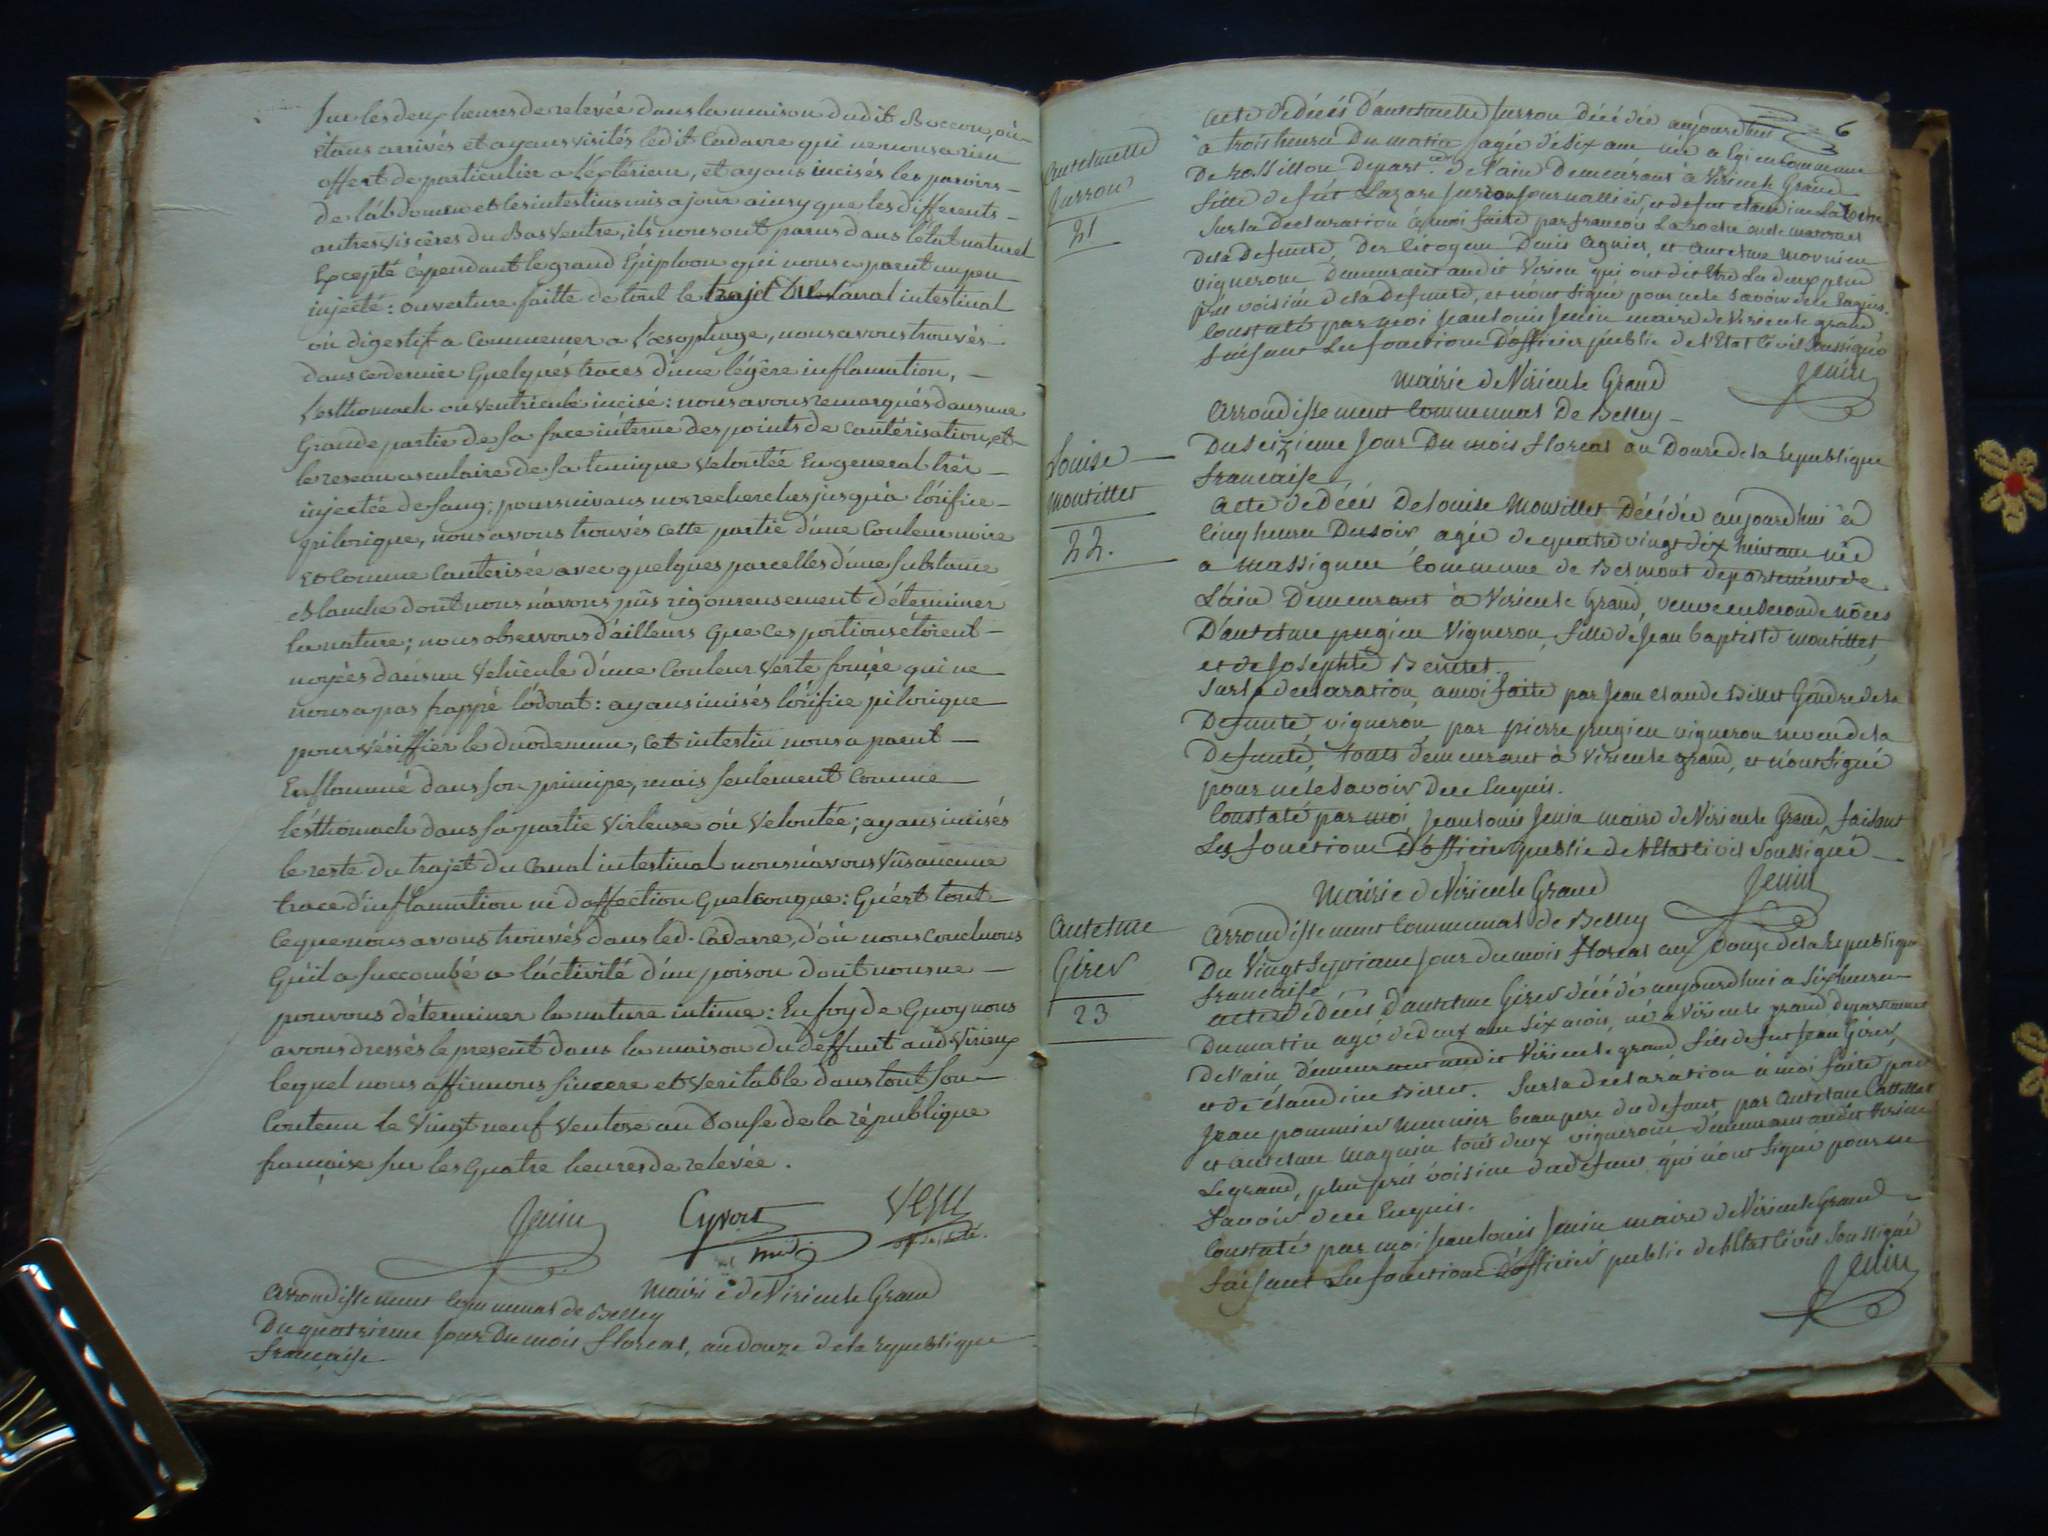 Sur les deux heures de relevée dans la maison dudit Boccon, où
étans arrivés et ayans visités ledit Cadavre qui ne nous a rien
offert de particulier a l'extérieur, et ayans incisés les parois
de l'abdomen et les intestins mis a jour ainsy que les differents
autres viscères du Bas Ventre, ils nous ont parus dans l'etat naturel
Excepté cépendant le grand Epiploon qui nous a parut un peu
injecté : ouverture faitte de tout le trajet du Canal intestinal
où digestif a Commencer a l'oesophage, nous avons trouvés
dans ce dernier Quelqués traces d'une légère inflamation,
l'esthomach ou ventricule incisé : nous avons remarqués dans une
Grande partie de sa face intérne des points de Cautérisation, et
le reseau vasculaire de sa tunique Veloutée En general très
injectée de sang ; poursuivans nos recherches jusqu'a l'órifice
pilorique, nous avons trouvés cette partie d'une Couleur noire
Et Comme Cauterisée avec quelques parcelles d'une substance
Blanche dont nous n'avons pûs rigoureusement détérminer
la nature ; nous observons d'ailleurs Que Ces portions étoient
noyées dans un Vehicule d'une Couleur Verte foncée qui ne
nous a pas frappé l'ódorat : ayans incisés l'órifice pilorique
pour vériffier le duodenum, Cet intestin nous a parut
Enflammé dans son principe, mais seulement Comme
l'ésthomach dans sa partie Virleuse où Veloutée ; ayans incisés
le reste du trajet du Canal intestinal nous n'avons Vûs aucune
trace d'inflamation ni d'affection Quelconque : Qu'ést tout
Ce que nous avons trouvés dans led. Cadavre, d'où nous Concluons
Qu'il a succombé a l'áctivité d'un poison dont nous ne
pouvons détérminer la nature intime : En foy de Quoy nous
avons dressés le present dans la maison du deffunt aud Virieux
lequel nous affirmons sincere et Veritable dans tout son
Contenu le Vingt neuf Ventose an Douse de la république
française sur les Quatre heures de relevée.
Jenin Cyvoct
méd.
Mairie de Virieu le Grand
Arrondissement Communal de Belley
Du quatrieme Jour Du mois floreal, an douze de la republique
française
6
Antelmette
Jurron
21
Acte de décés d'antelmette Jurron Décédée aujourdhui
à trois heures Du matin agée dé six ans née a Egieu Commune
De rossillon Depart.ent De l'ain Demeurant à Virieu le Grand
fille de fut Lazare Jurron Journallier et de fut claudine Laroche
Sur la Declaration a moi faite par francois Laroche oncle maternel
De la defunte, Des Citoyens Denis Agnier, et Antelme Mornieu
vignerons Demeurant audit Virieu qui ont dit Etre Les deux plus
près voisins de la defunte, et n'ont signé pour ne le savoir de ce Enquis.
Constaté par moi Jean Louis Jenin maire de Virieu le grand,
faisant Les fonctions D'officier public de l'Etat Civil Soussigné
Jenin
Mairie de Virieu le Grand
Arrondissement Communal De Belley
Louise
Montillet
22.
Du Seizieme Jour Du mois floreal an Douze de la republique
française
Acte de Décés De Louise Montillet Décédée aujourdhui à
Cinq heures Du soir agée de quatre vingt dix huit ans née
a Massignieu Commune de Belmont departement de
L'ain Demeurant à Virieu le Grand, veuve en seconde nôces
D'antelme pugieu Vigneron, fille dé Jean baptiste montillet,
et de Josephte Berthet.
Sur la declaration a moi faite par Jean claude Billet Gendre de la
Defunte vigneron, par pierre pugieu vigneron neveu de la
Defunte, touts demeurant à Virieu le grand, et n'ont signé
pour ne le savoir de ce Enquis.
Constaté par moi Jean Louis Jenin maire de Virieu le Grand faisant
Les fonctions D'officier public de l'Etat Civil Soussigné
Jenin
Mairie de Virieu le Grand
Arrondissement Communal de Belley
Antelme
Girer
23
Du Vingt Septieme Jour du mois floreal an Douze de la republique
française
Acte de Décés d'antelme Girer décédé aujourdhui a Six heures
Du matin agé de deux ans six mois, né a Virieu le grand departement
de l'ain demeurant audit Virieu le grand, fils de fut Jean Girer
et de claudine Billet. Sur la declaration à moi faite par
Jean pommier Meunier beau pere du defunt par Antelme Cattillet
et antelme Magnin tous deux vignerons demeurant audit Virieu
Le grand, plus près voisins du defunt, qui n'ont signé pour ne
savoir de ce Enquis.
Constaté par moi Jean louis Jenin maire de Virieu le Grand
faisant Les fonctions d'officier public de l'Etat Civil Soussigné
Jenin